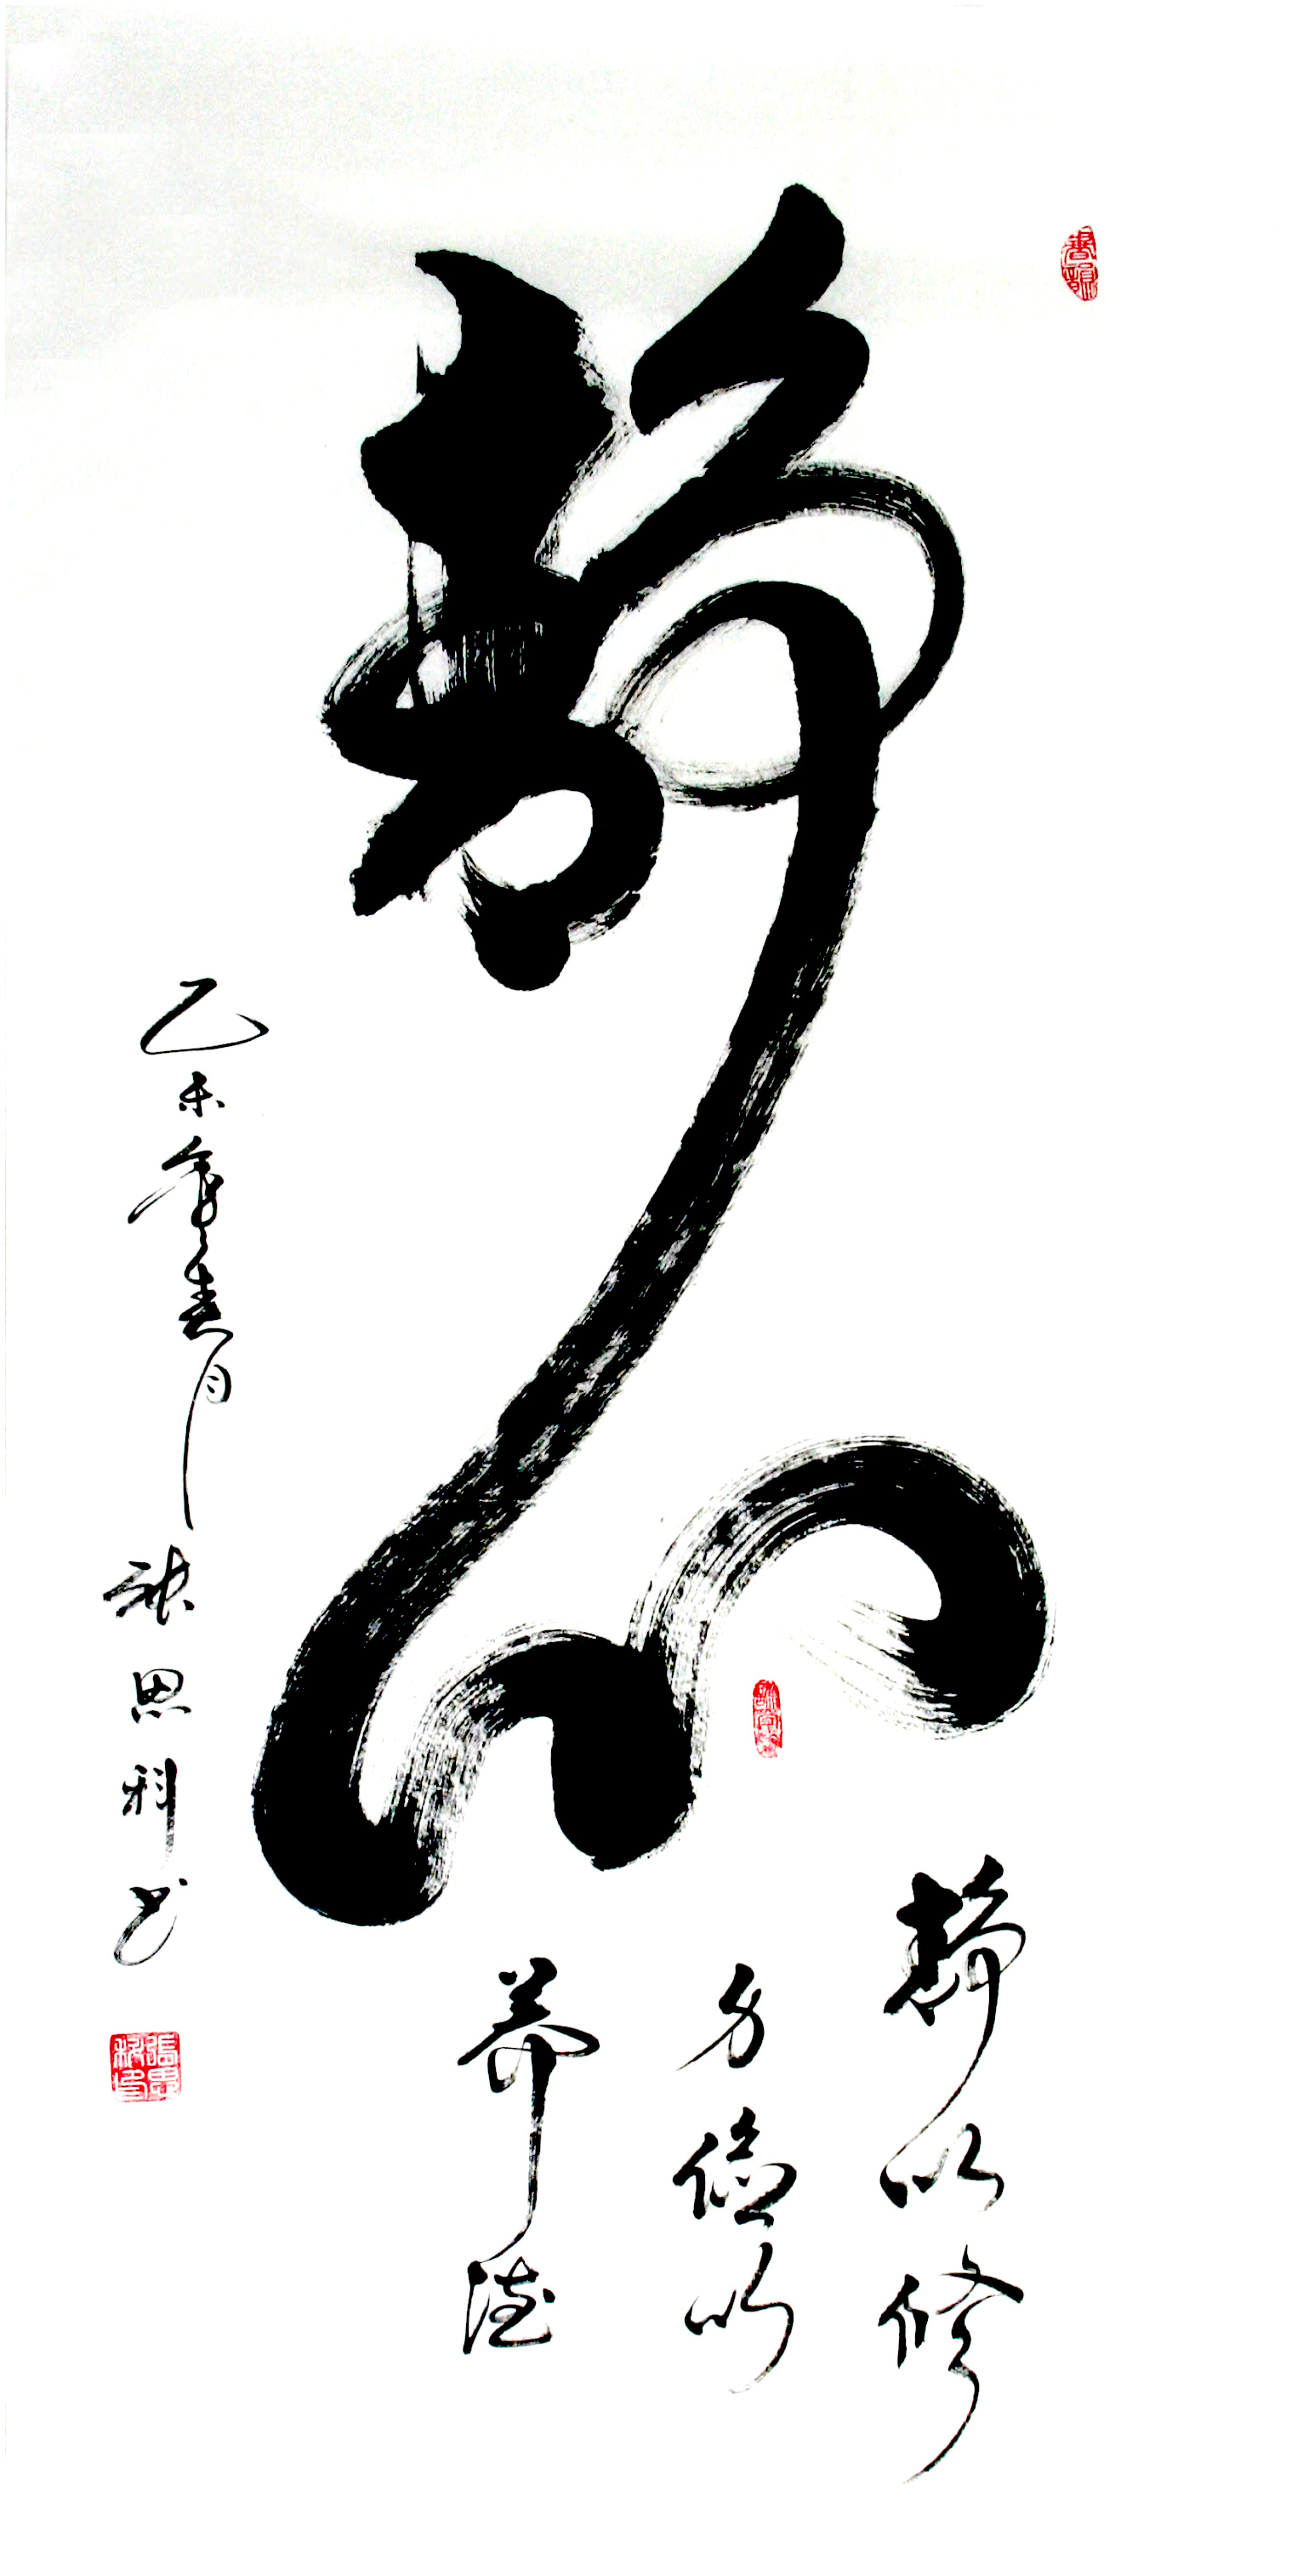 静心
静以修
身俭以
养德
乙未年春月张思科书
張思科印